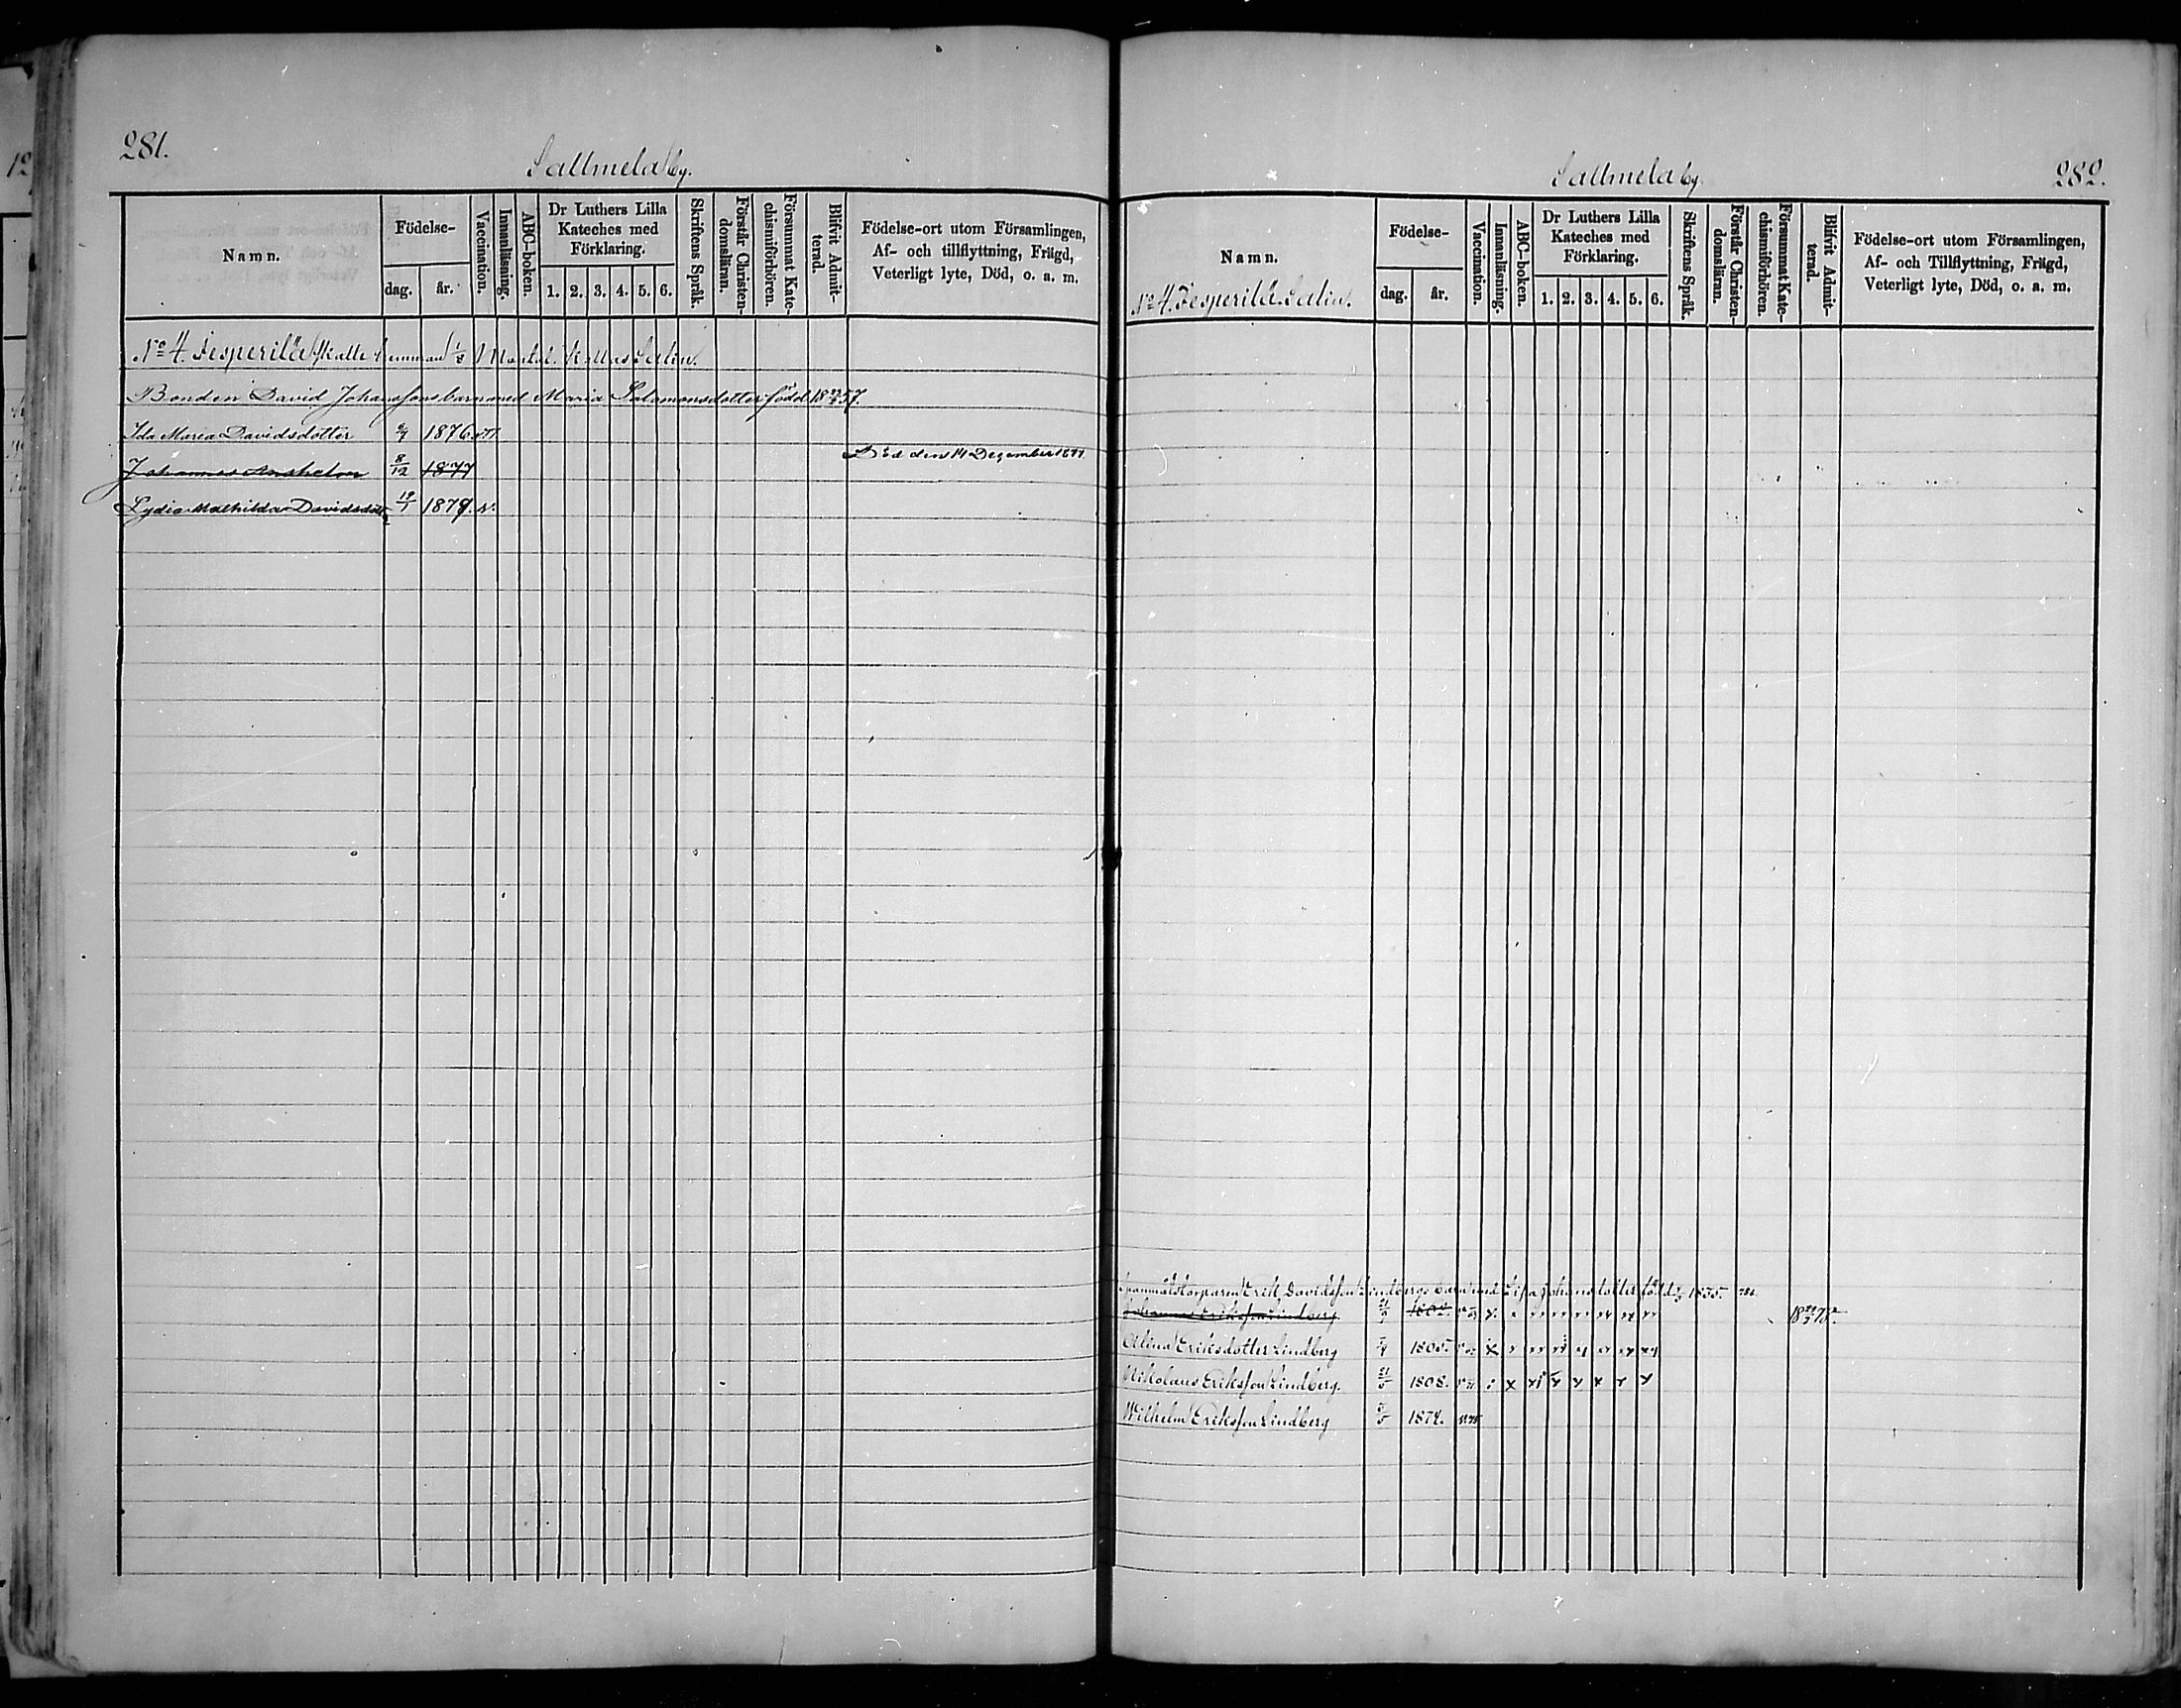 281.
Sallmela by.
Namn.
Födelse-
dag.
år.
Vaccination.
Innanläsning.
ABC-boken.
Dr Luthers Lilla
Kateches med
Förklaring.
1. 2. 3. 4. 5. 6.
Skriftens Språk.
Förstår Christen-
domsläran.
Försummat Kate-
chismiförhören.
Blifvit Admit-
terad.
Födelse-ort utom Församlingen,
Af- och tillflyttning, Frägd,
Veterligt lyte, Död, o. a. m.
No 4. Jesperilä Skatte hemman 1/3 Mantal.
Bonden David Johanssons barn med Maria Salomonsdotter född 18 57
Ida Maria Davidsdotter 1876
Johannes 8/12 1877 Död den 14 December 1877
Lydia Mathilda Davidsdott 1879. v.
Sallmela by
282.
Namn.
No 4. Jesperilä
Födelse-
dag.
år.
Vaccination.
Innanläsning.
ABC-boken.
Dr Luthers Lilla
Kateches med
Förklaring.
1. 2. 3. 4. 5. 6.
Skriftens Språk.
Förstår Christen-
domsläran.
Försummat Kate-
chismiförhören.
Blifvit Admit-
terad.
Födelse-ort utom Församlingen,
Af- och Tillflyttning, Frägd,
Veterligt lyte, Död, o. a. m.
Erik Davidsson Lindbergs barn med Lisa Johansdotter född 1835.
Johannes Eriksson Lindberg
Alina Eriksdotter Lindberg
Nikolaus Eriksson Lindberg.
Wilhelm Eriksson Lindberg 1874.